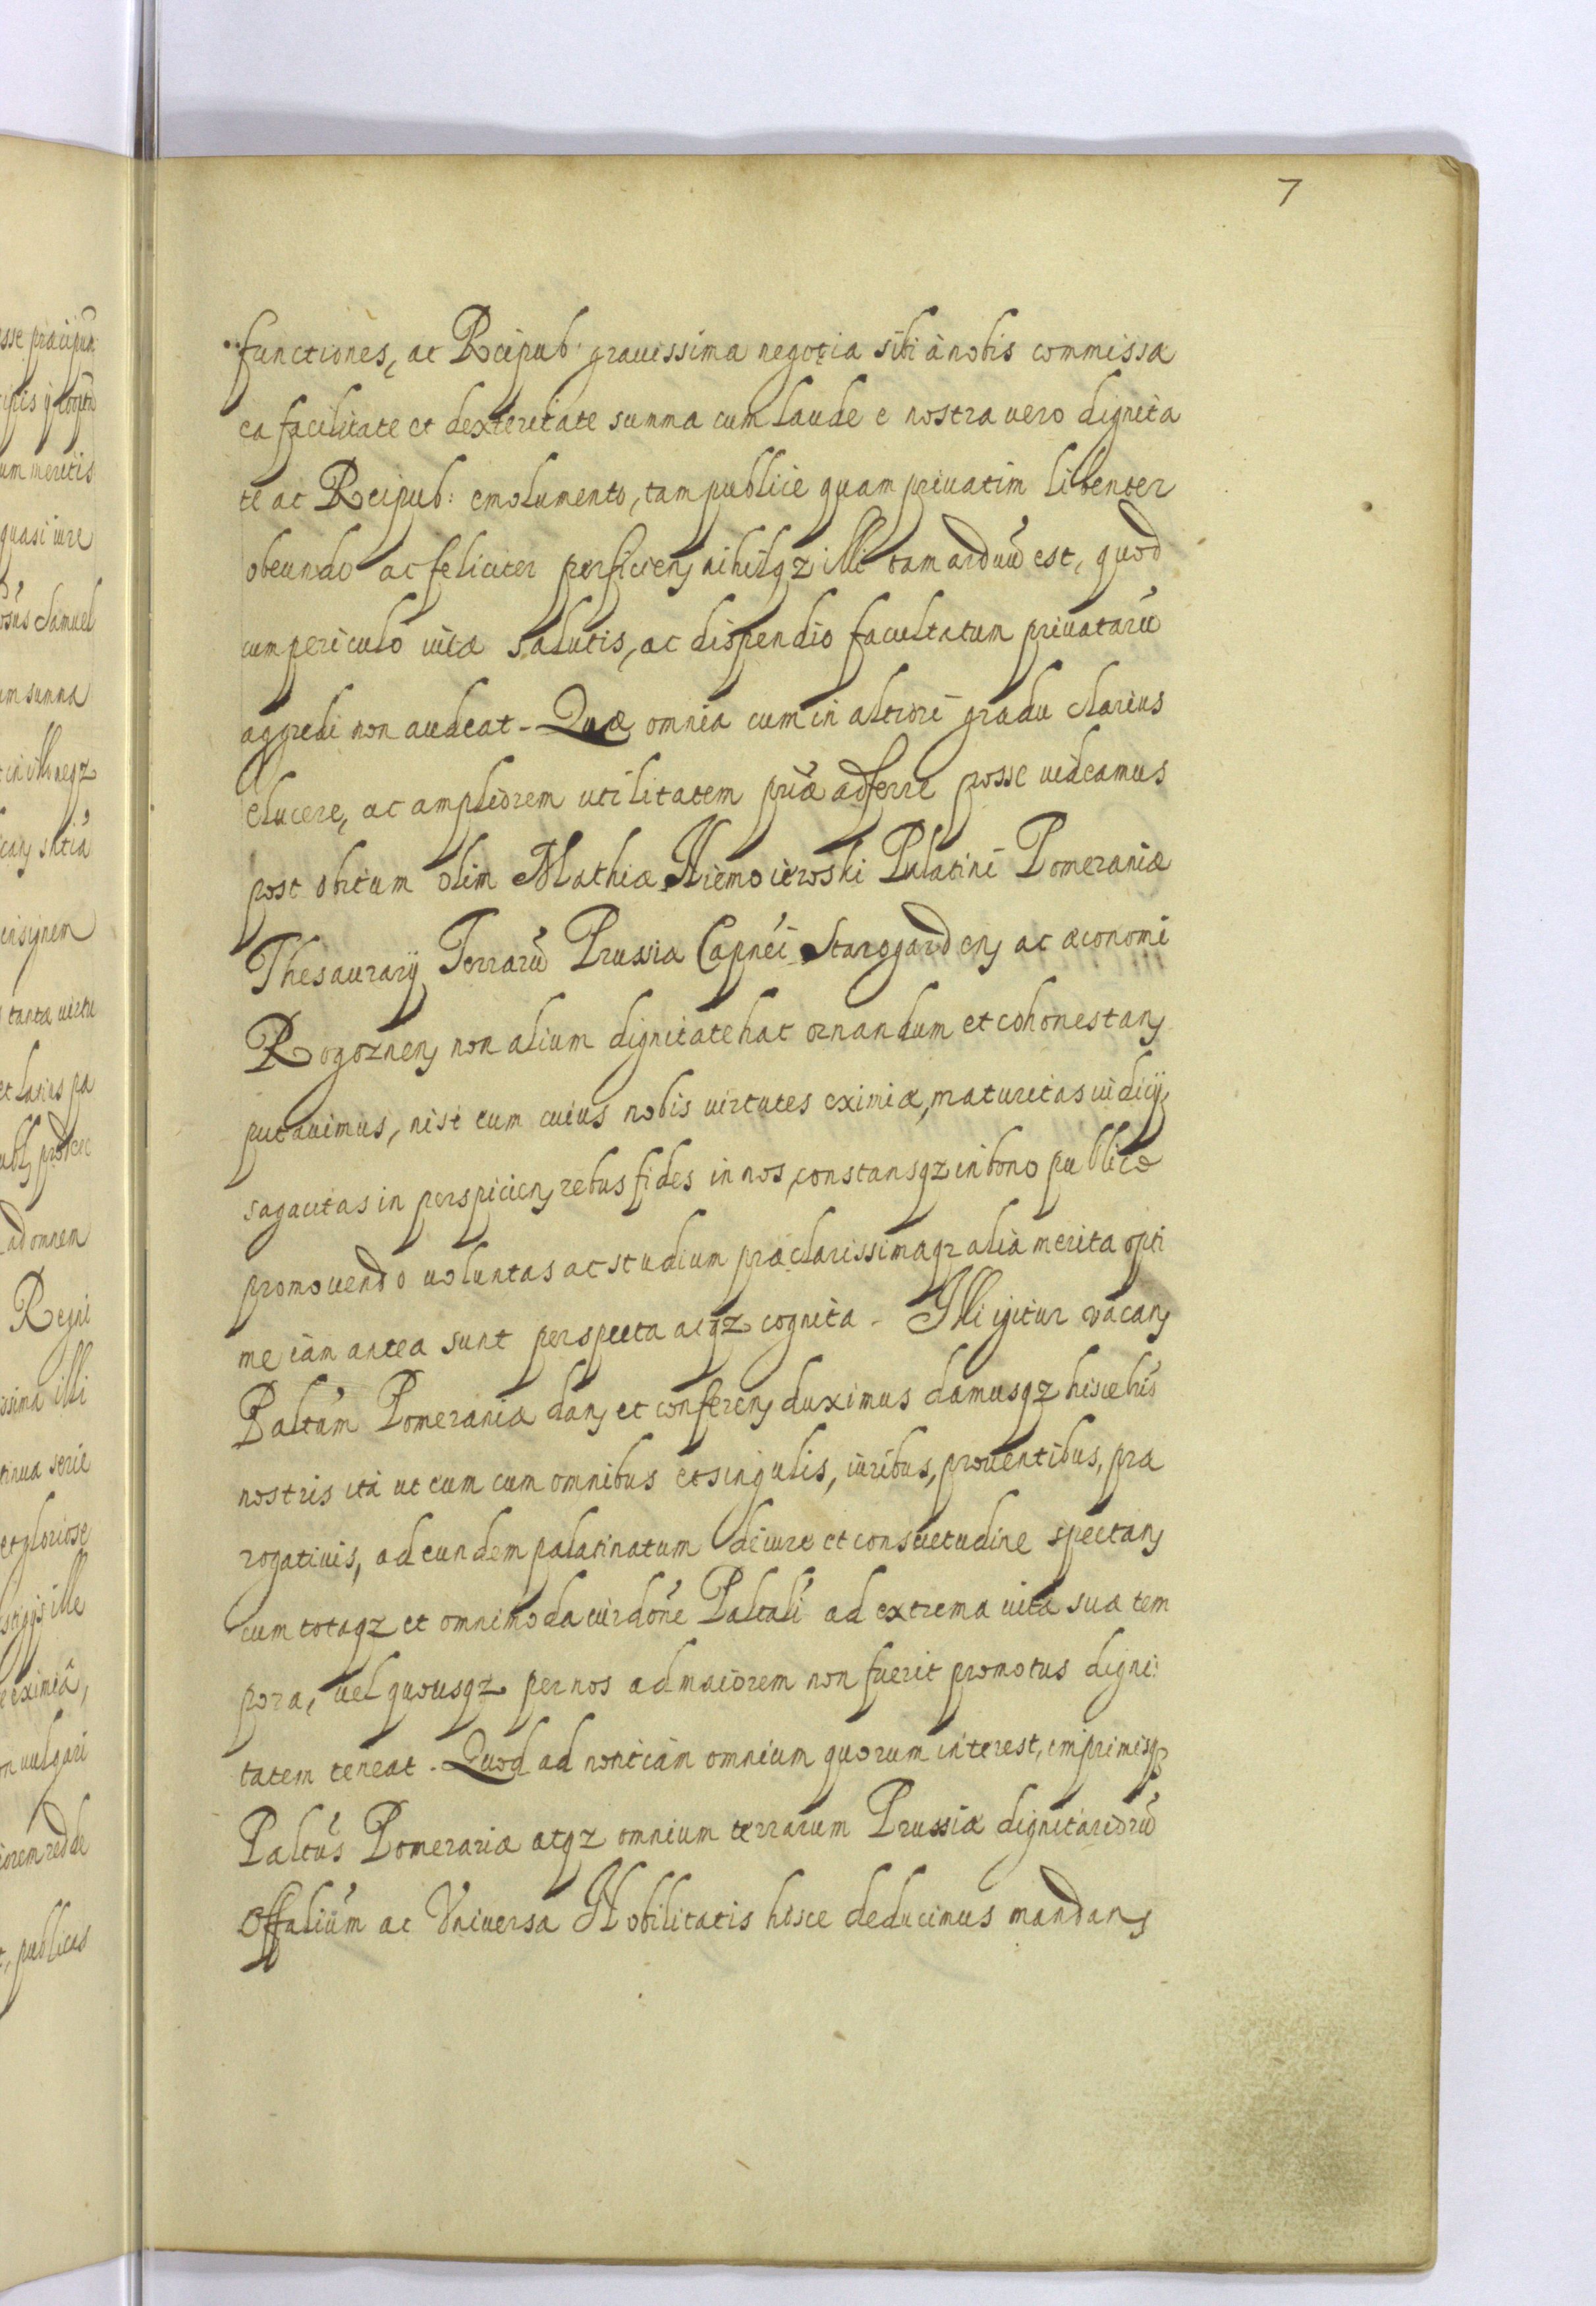 7
functiones, ac Reipub: grauissima negotia sibi à nobis commissa
ea facilitate et dexteritate summa cum laude e nostra uero dignita
te ac Reipub: emolumento, tam publice quam priuatim libenter
obeundo ac feliciter perficien nihilqz illi tam arduū est, quod
cum periculo uitæ salutis, ac dispendio facultatum priuatarū
aggredi non audeat - Quæ omnia cum in altiori gradu clarius
elucere, ac ampliorem utilitatem priæ adferre posse uideamus
post obitum olim Mathiæ Niemoiewski Palatini Pomeraniæ
Thesaurarij Terrarū Prussiæ Capnei Starogarden ac œconomi
Rogoznen non alium dignitate hac ornandum et cohonestan
putauimus, nisi eum cuius nobis uirtutes eximiæ, maturitas iudicij,
sagacitas in perspicien rebus fides in nos, constansqz in bono publico
promouendo uoluntas ac studium præclarissimaqz alia merita opti
me iam antea sunt perspecta atqz cognita - Illi igitur vacan
Paltum Pomeraniæ dan et conferen duximus damusqz hisce lris
nostris ita ut eum cum omnibus et singulis, iuribus, prouentibus, præ
rogatiuis, ad eundem palatinatum de iure et consuetudine spectan
cum totaqz et omnimoda iurdone Paltali ad extrema uitæ suæ tem
pora, uel quousqz per nos ad maiorem non fuerit promotus digni:
tatem teneat - Quod ad notitiam omnium quorum interest, imprimisqz
Paltus Pomeraniæ atqz omnium terrarum Prussiæ dignitariorū
Offalium ac Vniuersæ Nobilitatis hisce deducimus mandan